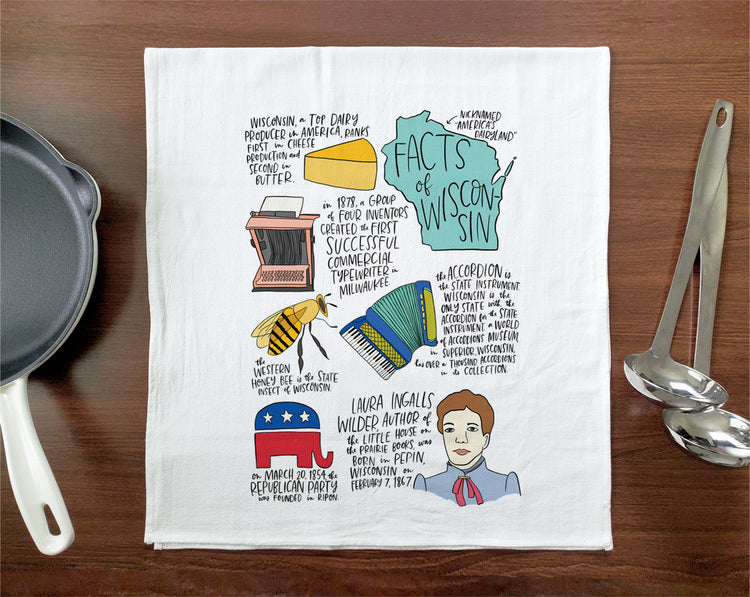 WISCONSIN, a TOP DAIRY
PRODUCER in AMERICA, RANKS
FIRST in CHEESE
PRODUCTION and
SECOND in
BUTTER.
NICKNAMED
"AMERICA'S
DAIRYLAND"
FACTS
of
WISCON-
SIN
in 1878, a GROUP
of FOUR INVENTORS
CREATED the FIRST
SUCCESSFUL
COMMERCIAL
TYPEWRITER in
MILWAUKEE
the ACCORDION is
the STATE INSTRUMENT.
WISCONSIN is the
ONLY STATE with the
ACCORDION for the STATE
INSTRUMENT. a WORLD
of ACCORDIONS MUSEUM
in SUPERIOR, WISCONSIN,
has OVER a THOUSAND ACCORDIONS
in its COLLECTION
the
WESTERN
HONEY BEE is the STATE
INSECT of WISCONSIN.
LAURA INGALLS
WILDER, AUTHOR of
the LITTLE HOUSE on
the PRAIRIE BOOKS, was
BORN in PEPIN,
WISCONSIN on
FEBRUARY 7, 1867.
on MARCH 20, 1854, the
REPUBLICAN PARTY
was FOUNDED in RIPON.